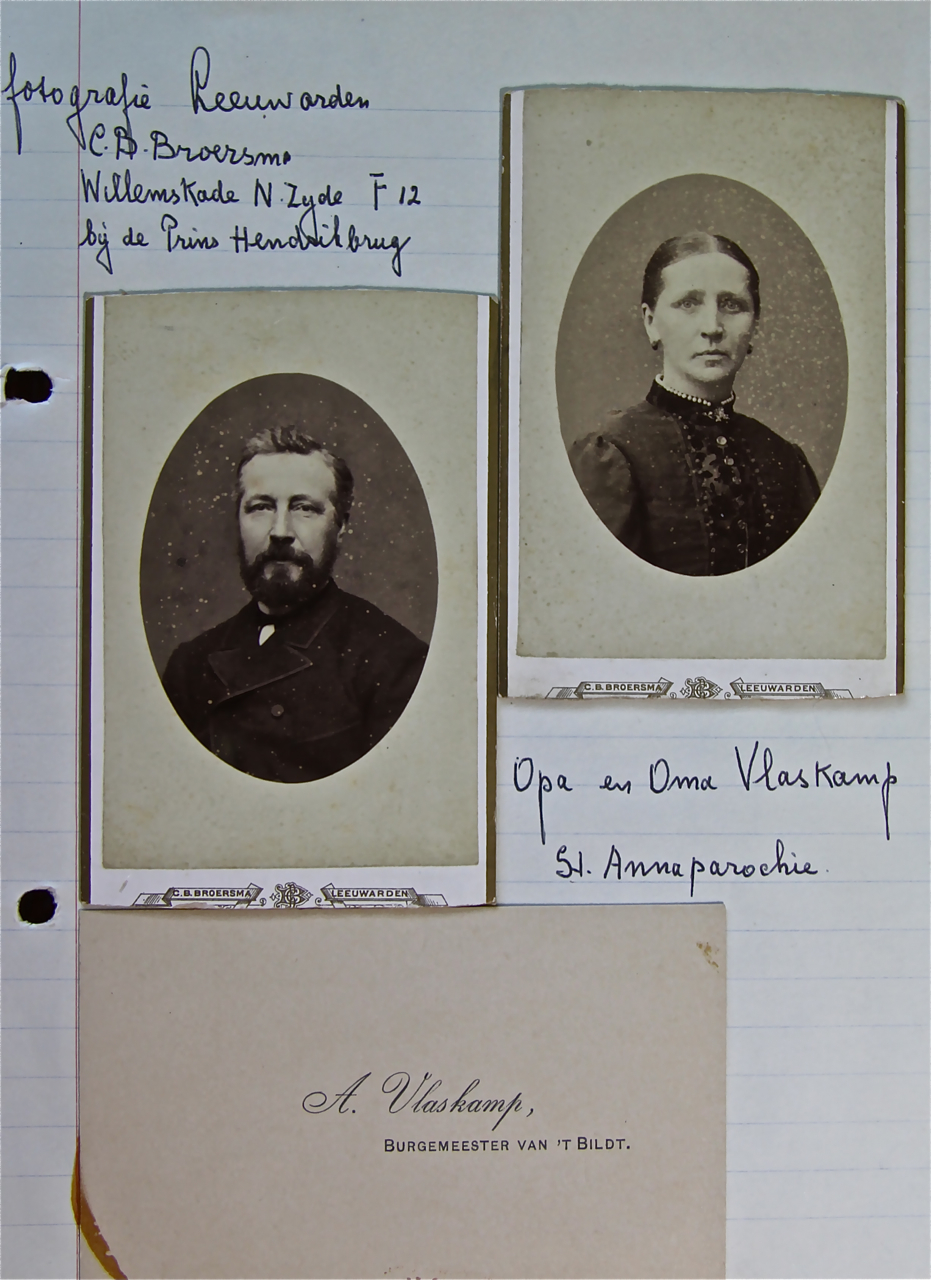 fotografie Leeuwarden
C.B. Broersma
Willemskade N. Zyde F 12
bij de Prins Hendrikbrug
C.B. BROERSMA LEEUWARDEN
Opa en Oma Vlaskamp
St. Annaparochie.
C.B. BROERSMA LEEUWARDEN
A. Vlaskamp,
BURGEMEESTER VAN 'T BILDT.